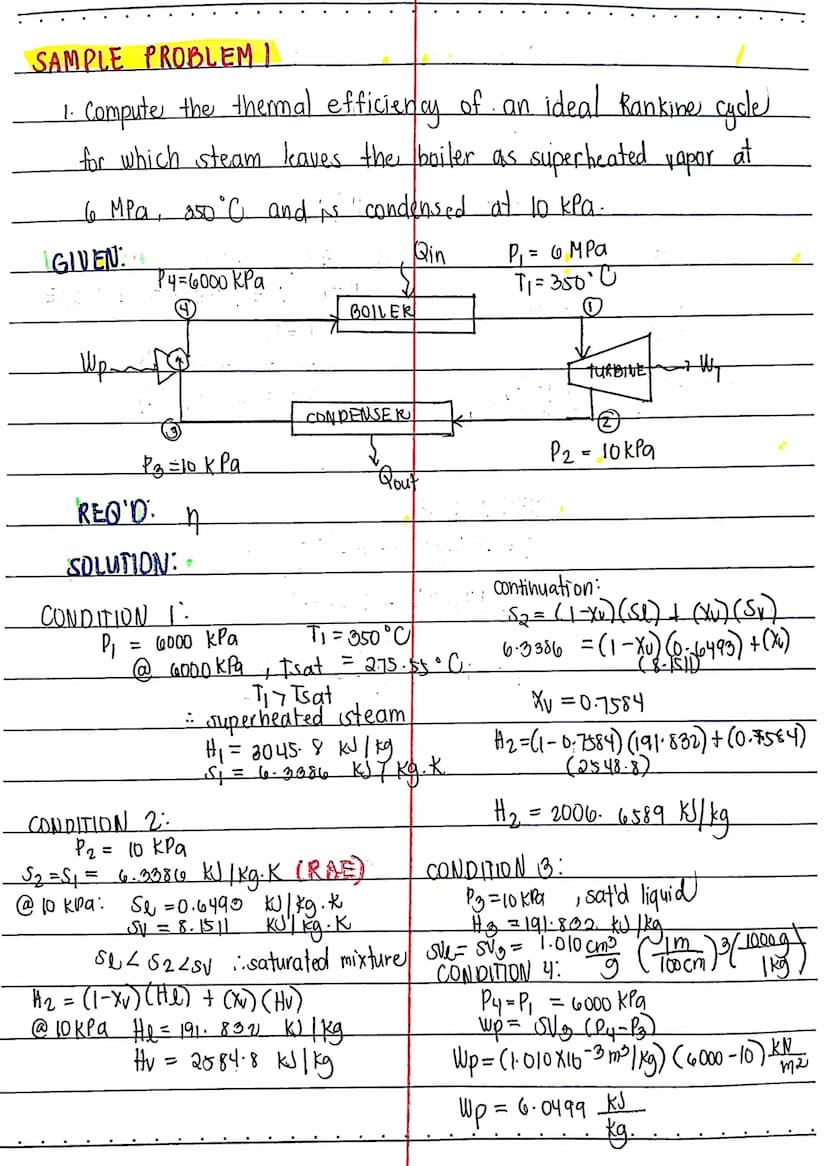 SAMPLE PROBLEM 1
1. Compute the thermal efficiency of an ideal Rankine cycle
for which steam leaves the boiler as superheated vapor at
6 MPa, 350°C and is condensed at 10 kPa.
GIVEN:
Qin
P₁ = 6 MPa
T₁ = 350°C
P4=6000 KPa
4
BOILER
1
Wp
TURBINE
W_T
CONDENSER
3
2
P3=10 KPa
Qout
P2 = 10KPa
REQ'D: η
SOLUTION:
CONDITION 1:
P₁ = 6000 KPa T₁ = 350°C
@ 6000 KPa, Tsat = 275.55°C
T₁ > Tsat
∴ superheated steam
H₁ = 3045.8 KJ/kg
S₁ = 6.3386 KJ/kg.K
CONDITION 2:
P₂ = 10 KPa
S₂=S₁ = 6.3386 KJ/kg.K (RAE)
@ 10 KPa: Sl = 0.6493 KJ/kg.K
SV = 8.1511 KJ/kg.K
Sl < S2 < SV ∴ saturated mixture
H₂ = (1-Xv)(Hl) + (Xv)(Hv)
@ 10KPa Hl = 191.832 KJ/kg
Hv = 2584.8 KJ/kg
continuation:
S₂ = (1-Xv)(Sl) + (Xv)(Sv)
6.3386 = (1-Xv)(0.6493) + (Xv)
(8.1511)
Xv = 0.7584
H₂=(1-0.7584)(191.832)+(0.7584)
(2548.8)
H₂ = 2006.6589 KJ/kg
CONDITION 3:
P₃=10 KPa, sat'd liquid
H₃ = 191.832 KJ/kg
SVl = SV₃ = 1.010 cm³/g (1m/100cm)³ (1000g/1kg)
CONDITION 4:
P4=P₁ = 6000 KPa
Wp = SV₃ (P4-P3)
Wp = (1.010 X10⁻³ m³/kg) (6000-10) KN/m2
Wp = 6.0499 KJ/kg.